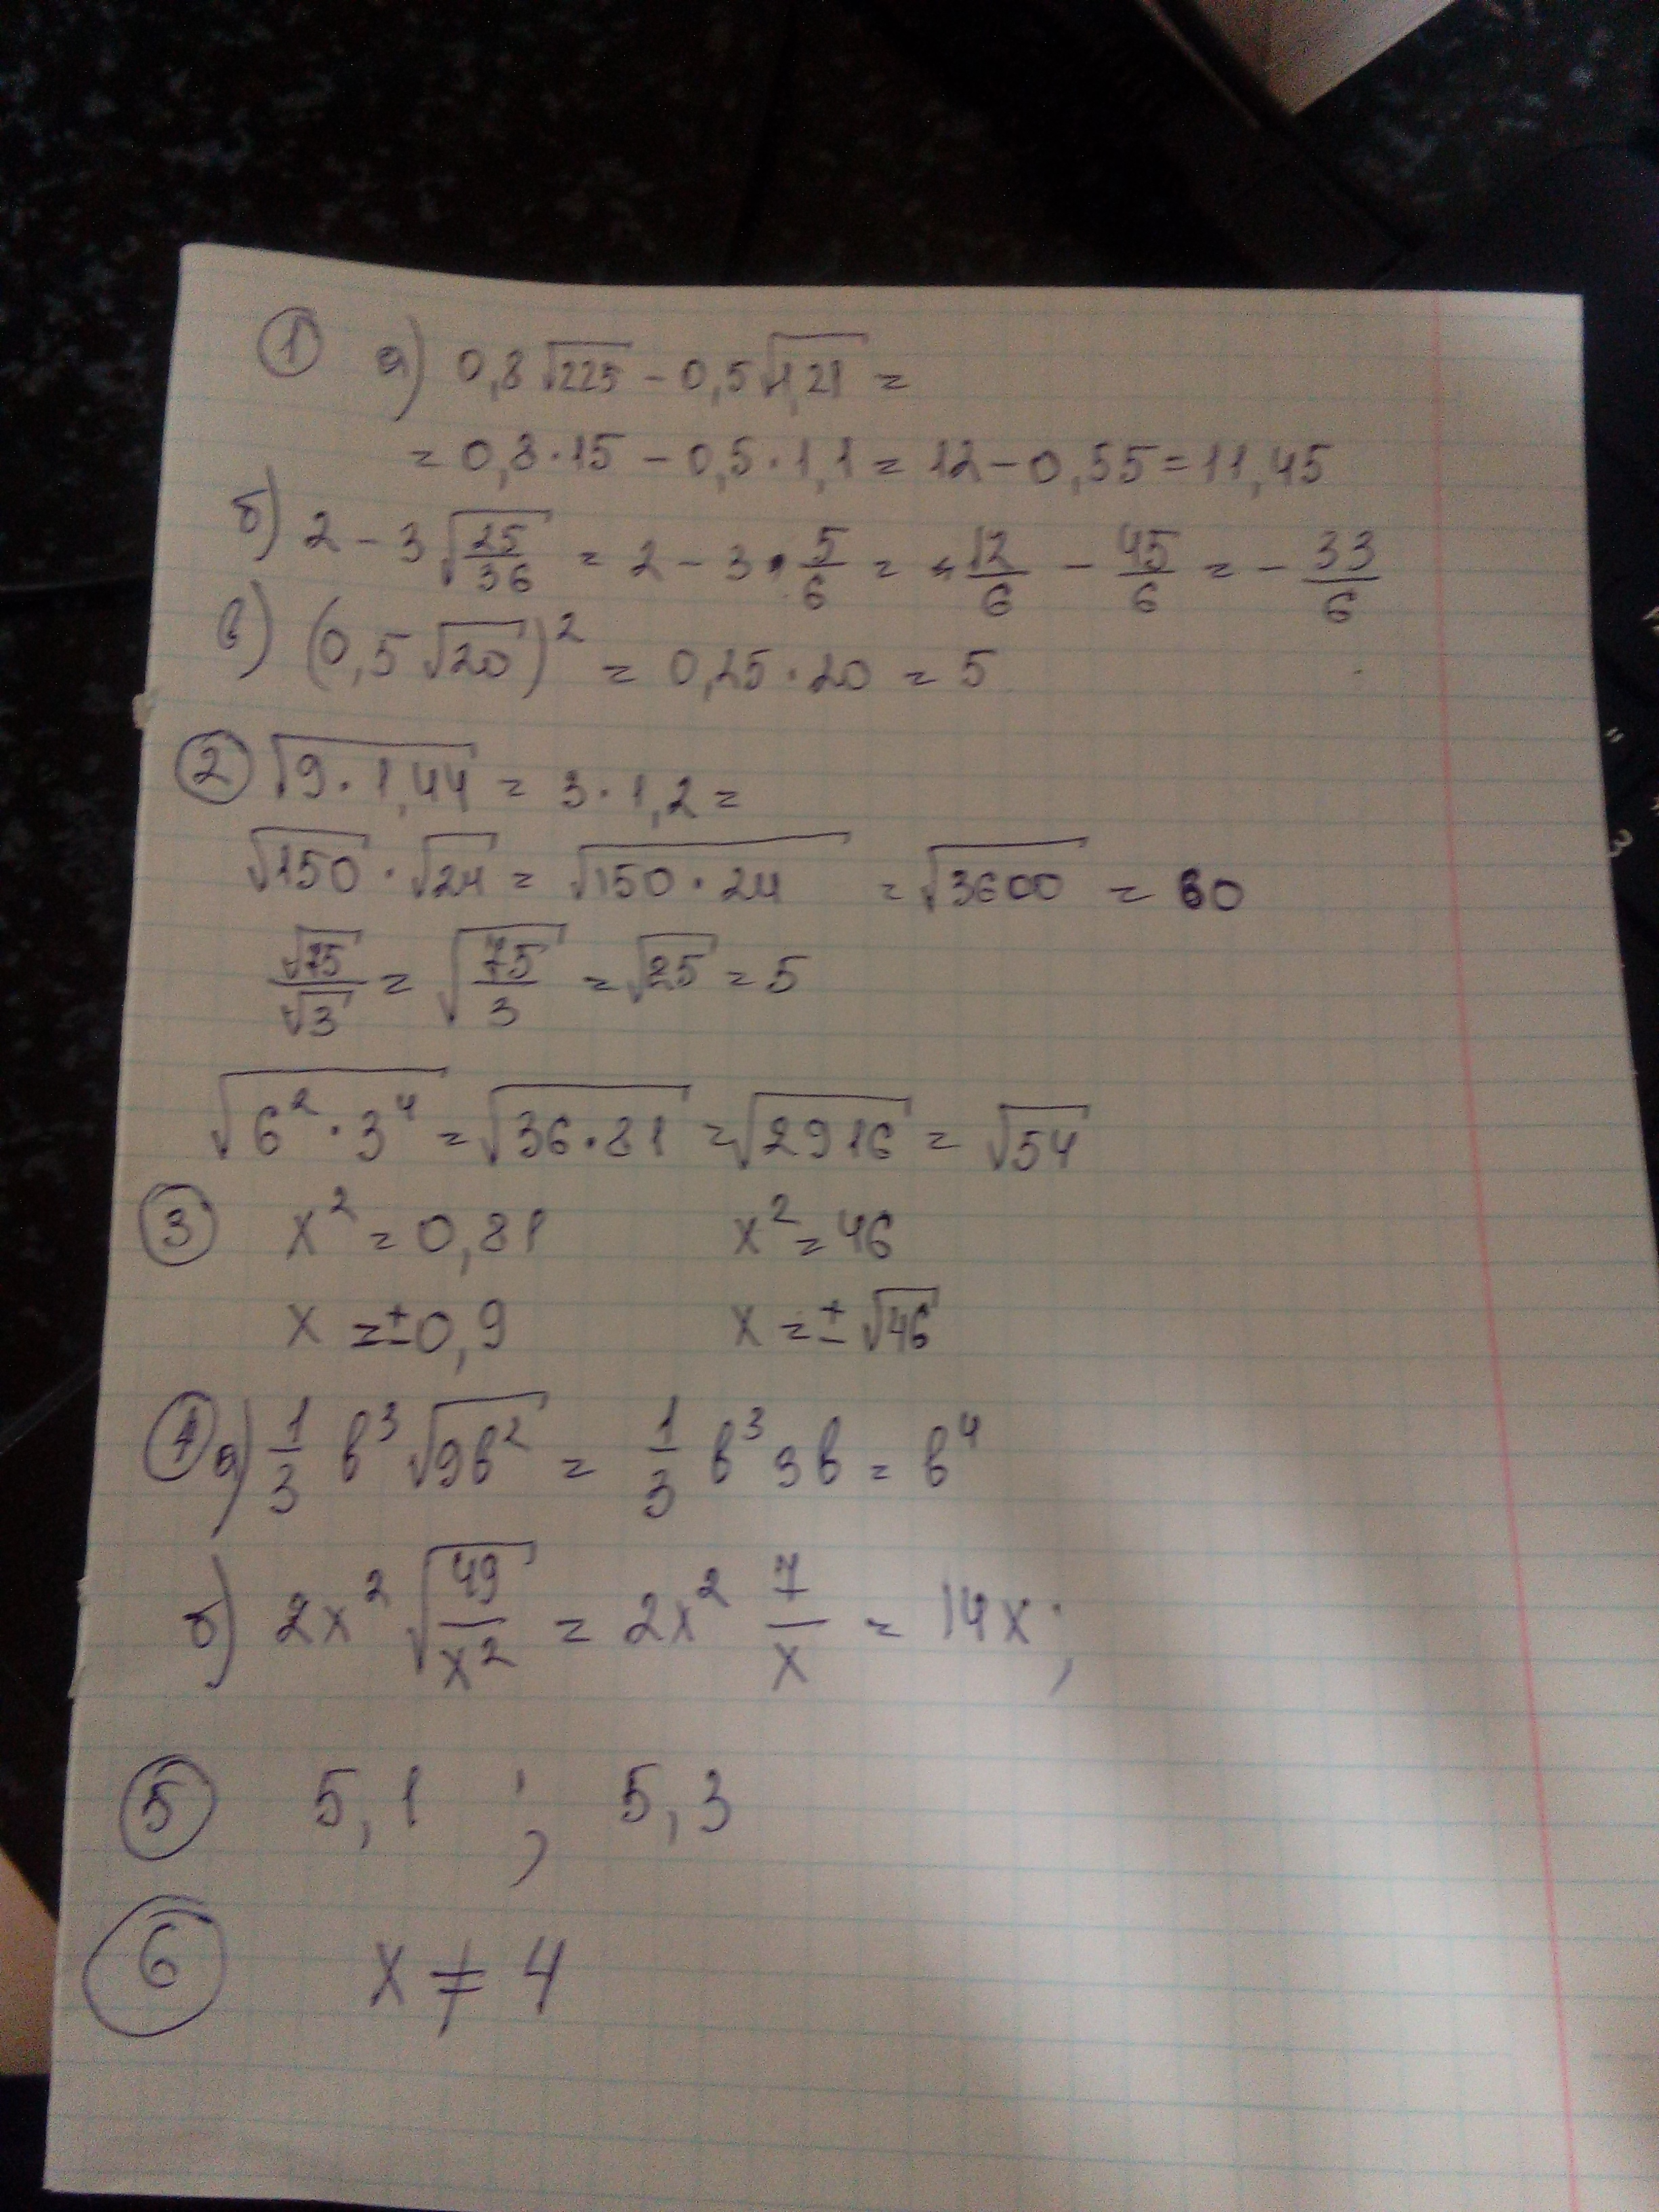 ① а) 0,8√225 - 0,5√1,21 =
= 0,8·15 - 0,5·1,1 = 12 - 0,55 = 11,45
б) 2 - 3√(25/36) = 2 - 3·5/6 = 12/6 - 45/6 = - 33/6
в) (0,5√20)² = 0,25·20 = 5
② √(9·1,44) = 3·1,2 =
√150·√24 = √(150·24) = √3600 = 60
√75/√3 = √(75/3) = √25 = 5
√(6²·3⁴) = √(36·81) = √2916 = √54
③ x² = 0,81 x² = 46
x = ±0,9 x = ±√46
④ а) 1/3 b³√(9b²) = 1/3 b³ 3b = b⁴
б) 2x²√(49/x²) = 2x² 7/x = 14x;
⑤ 5,1 ; 5,3
⑥ x ≠ 4